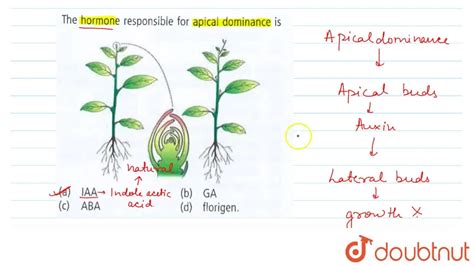 The hormone responsible for apical dominance is
Apical dominance
↓
Apical buds
↓
Auxin
↓
Lateral buds
↓
growth X
natural
↑
(a) IAA → Indole acetic acid
(b) GA
(c) ABA
(d) florigen.
doubtnut